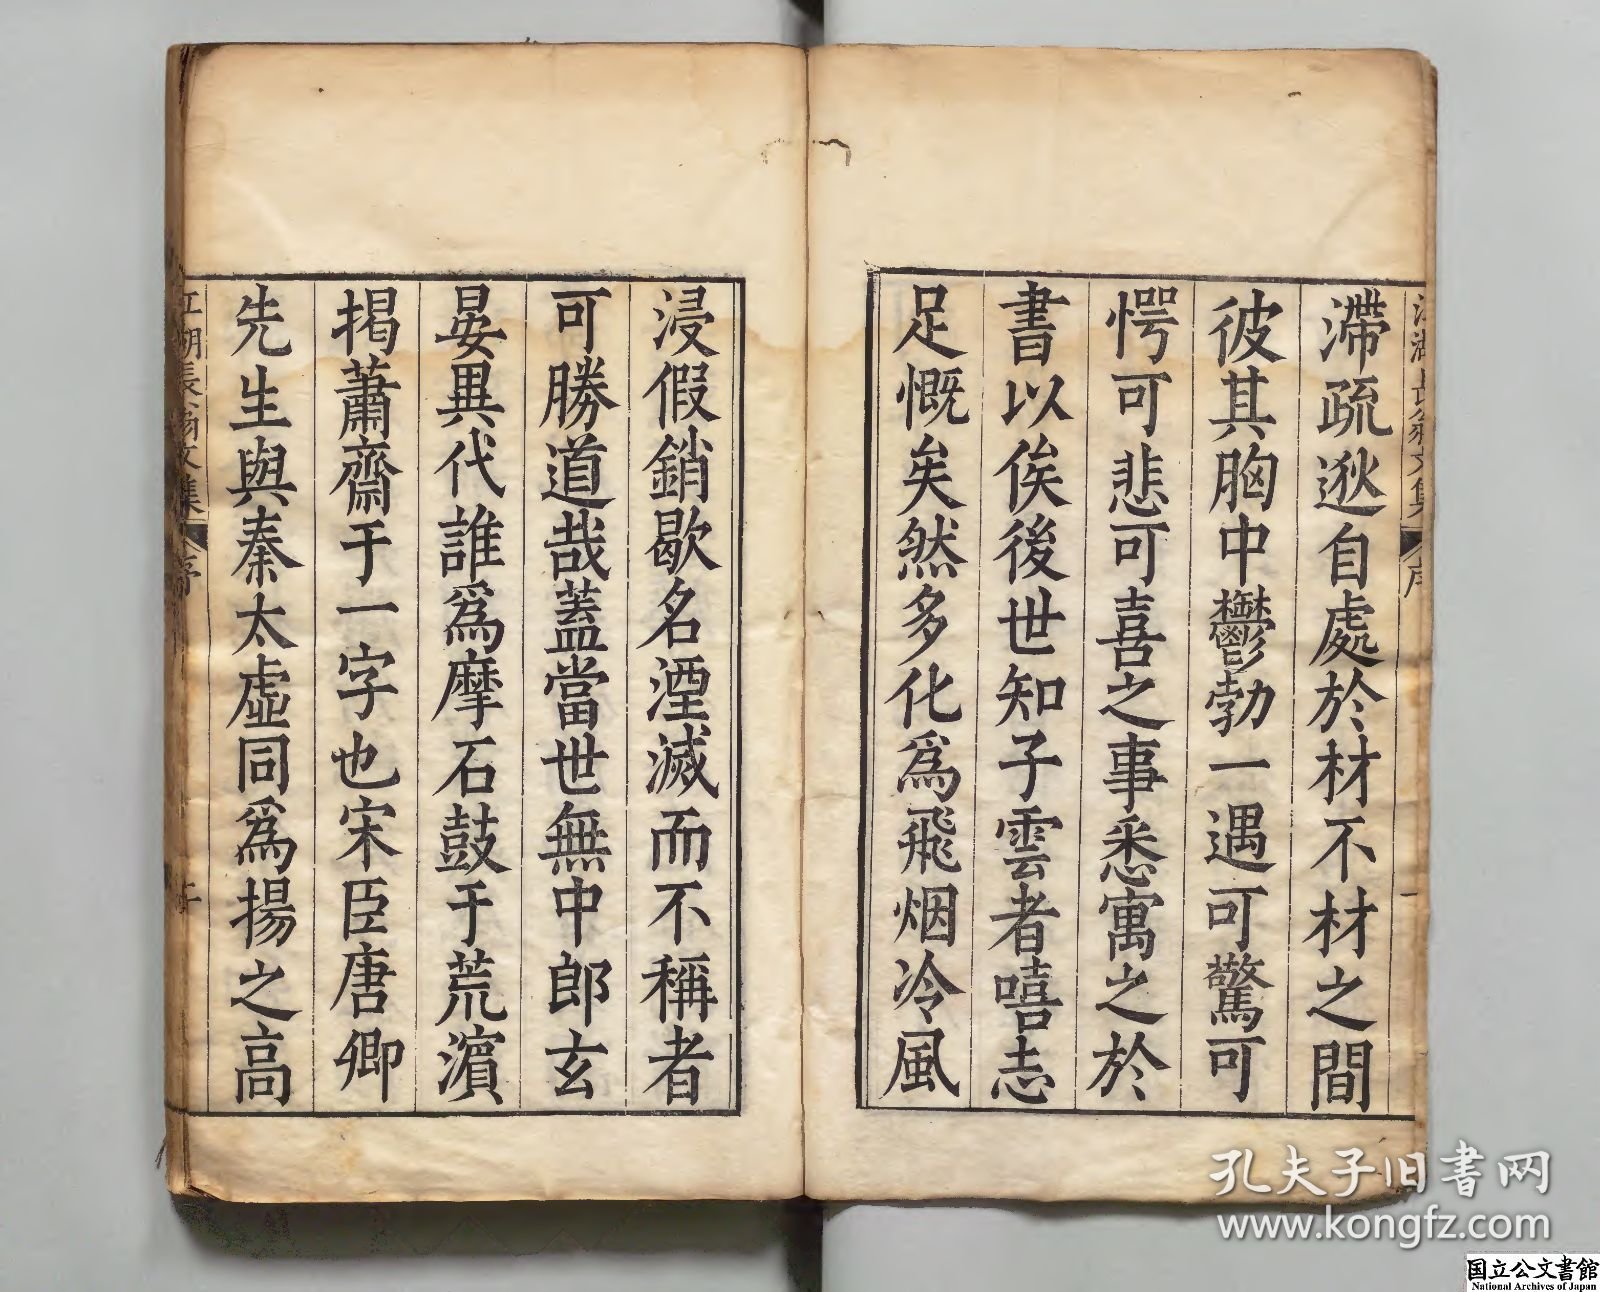 滯疏逖自處於材不材之間
彼其胸中鬱勃一遇可驚可
愕可悲可喜之事悉寓之於
書以俟後世知子雲者嘻志
足慨矣然多化為飛烟冷風
浸假銷歇名湮滅而不稱者
可勝道哉蓋當世無中郎玄
晏異代誰為摩石鼓于荒濵
揭蕭齋于一字也宋臣唐卿
先生與秦太虛同為揚之高
江湖長翁文集
序
孔夫子旧书网
www.kongfz.com
国立公文書館
National Archives of Japan